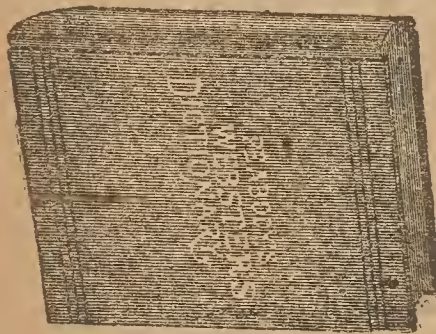 WEBSTER'S
DICTIONARY